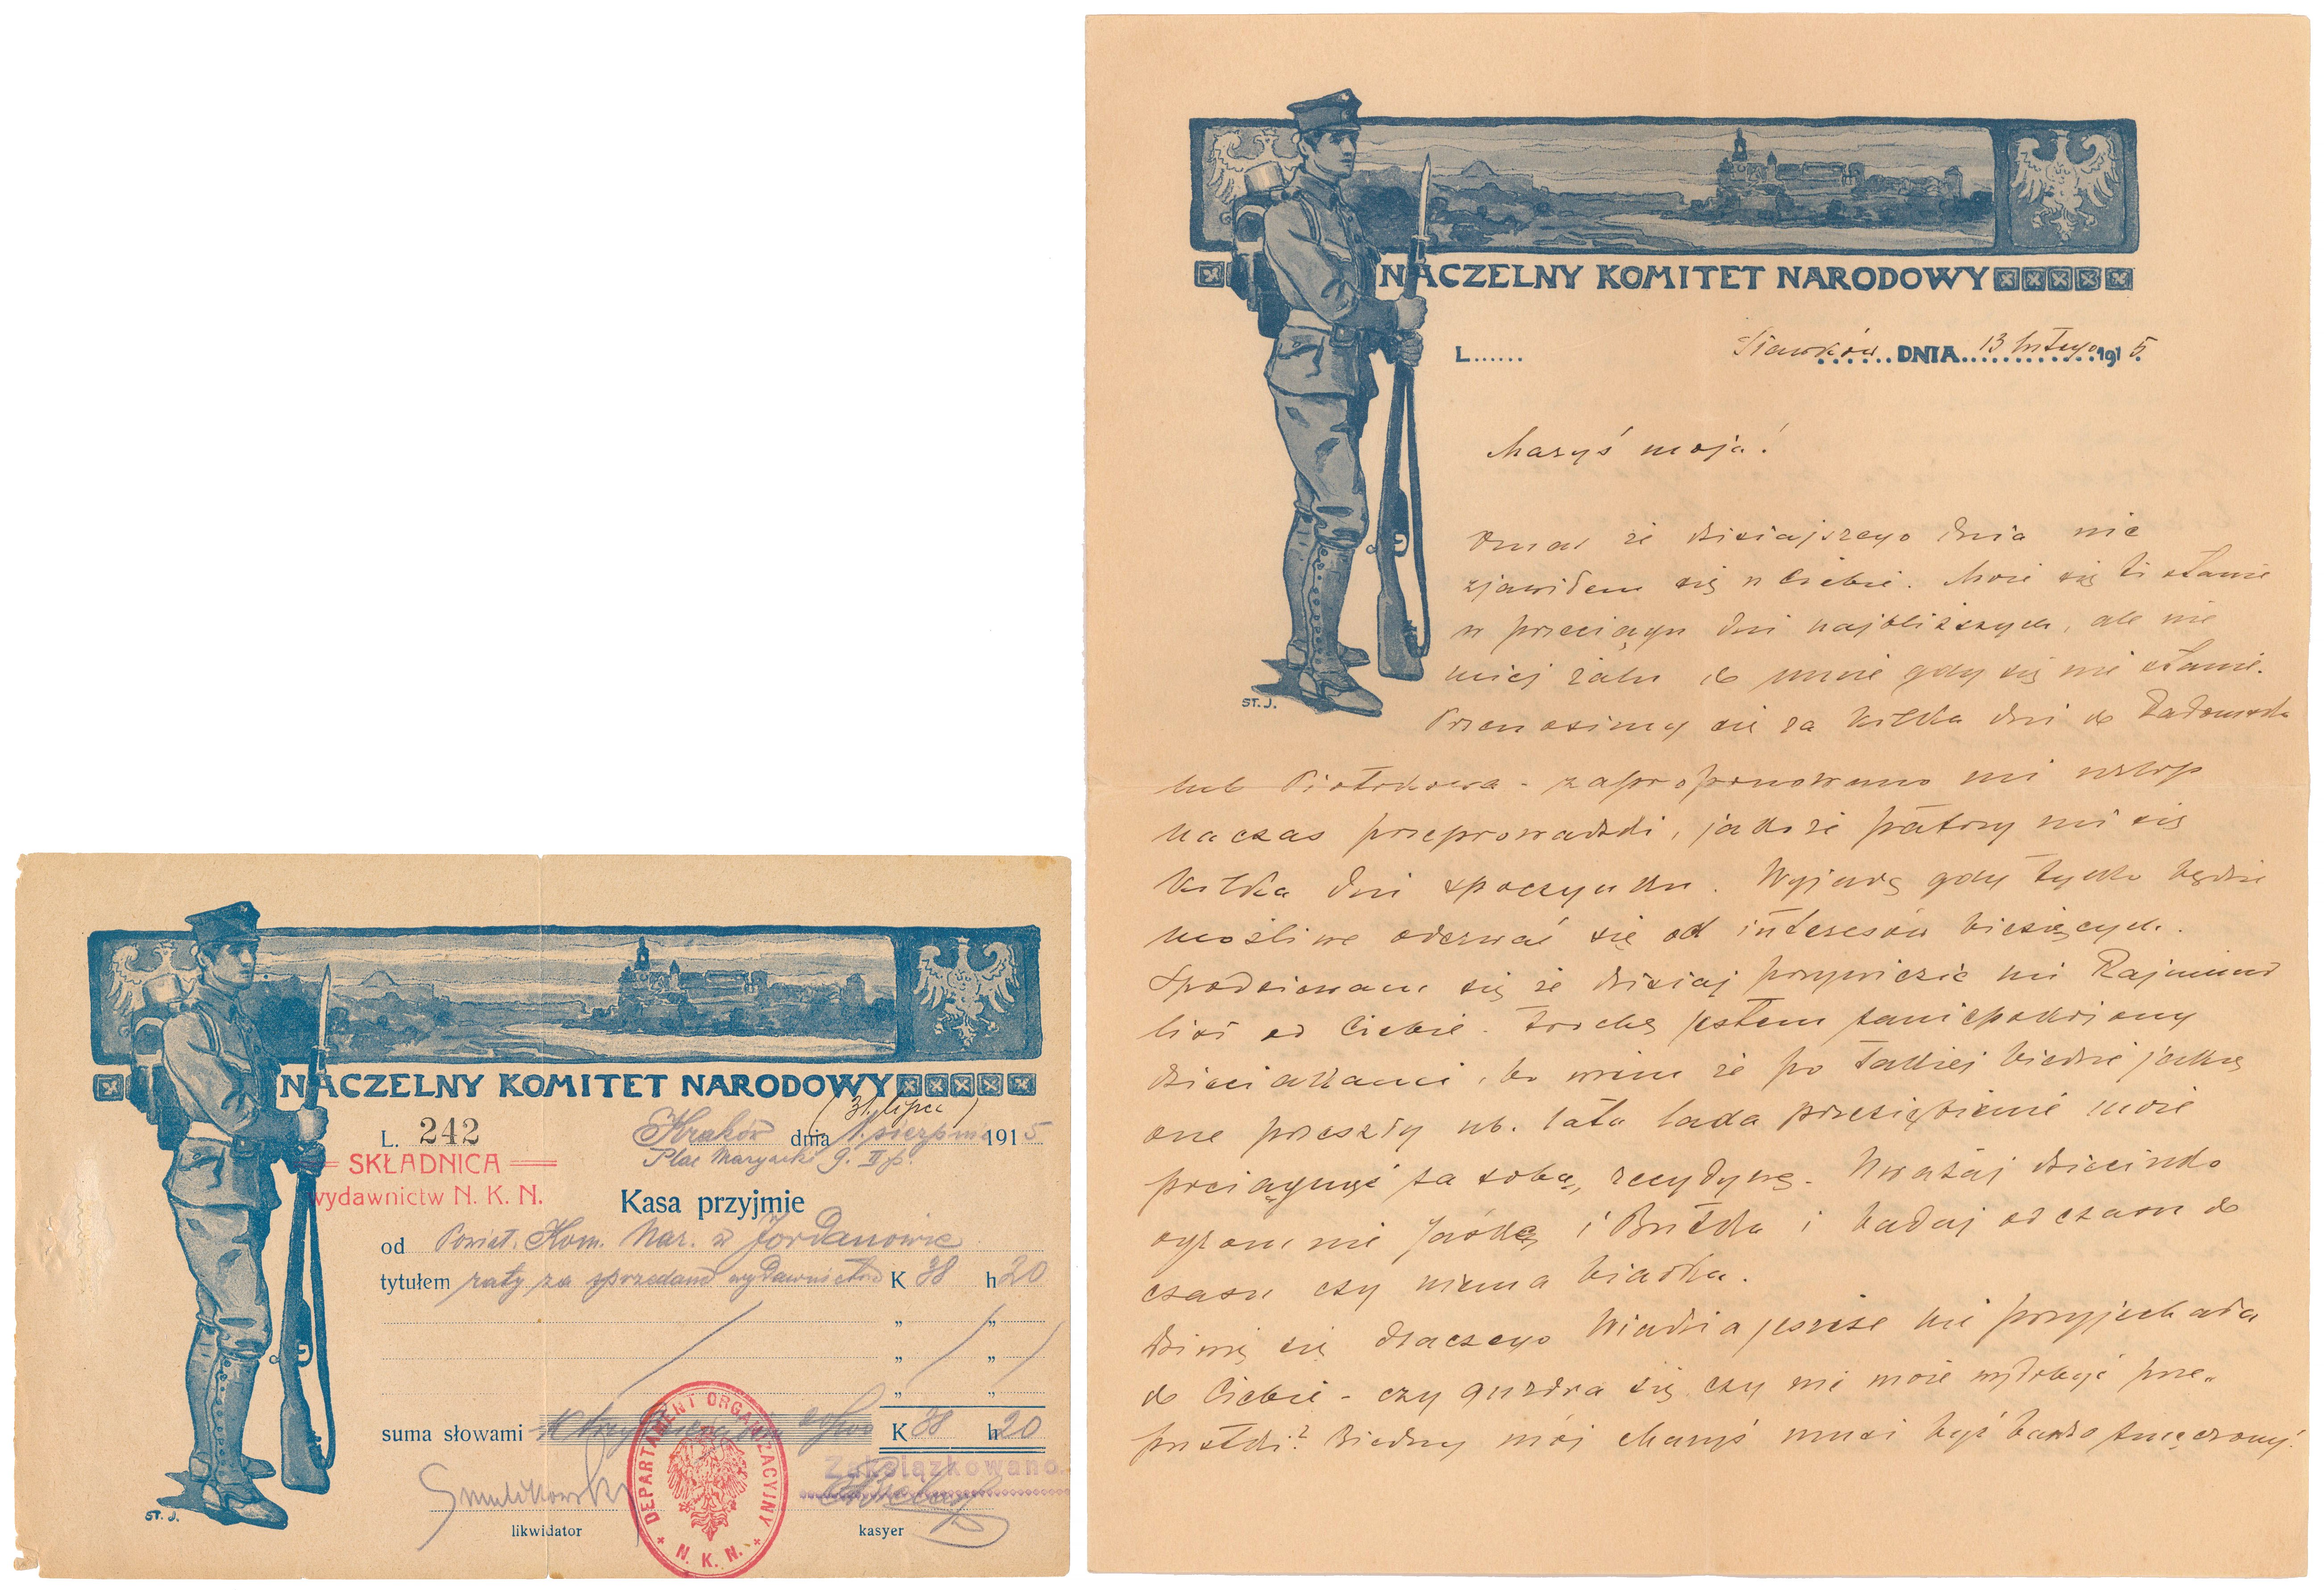 NACZELNY KOMITET NARODOWY
L. 242
Kraków dnia 1. sierpnia 1915
(31. lipca)
Plac Maryacki 9. II p.
SKŁADNICA
wydawnictw N. K. N.
Kasa przyjmie
od Powiat. Kom. Nar. w Jordanowie
tytułem raty za sprzedane wydawnictwa K 38 h 20
" "
" "
" "
suma słowami K 38 h 20
DEPARTAMENT ORGANIZACYJNY
N. K. N.
Zaksiążkowano
likwidator kasyer
ST. J.
NACZELNY KOMITET NARODOWY
L...... Sławków DNIA 13 lutego 1915.
Maryś moja!
że dzisiajszego dnia nie
zjawiłem się u Ciebie. Może się to stanie
w przeciągu dni najbliższych, ale nie
miej żalu do mnie gdy się nie stanie.
Przenosimy się za kilka dni do Radomska
lub Piotrkowa - zaproponowano mi urlop
na czas przeprowadzki, jakoże patrzy mi się
kilka dni spoczynku. Wyjadę gdy tylko będzie
możliwe oderwać się od interesów bieżących.
Spodziewam się że dzisiaj przywiezie mi Rajmund
list od Ciebie. Trochę jestem zaniepokojony
dzieciakami, bo wiem że po takiej biedzie jaką
one przeszły ub. lata lada przeziębienie może
pociągnąć za sobą recydywę. Uważaj dziecinko
ogromnie i i badaj od czasu do
czasu czy niema białka.
Dziwię się dlaczego Władzia jeszcze nie przyjechała
do Ciebie - czy guzdra się czy nie może wydobyć prze-
pustki? Biedny mój Maryś musi być bardzo zmęczony!
ST. J.